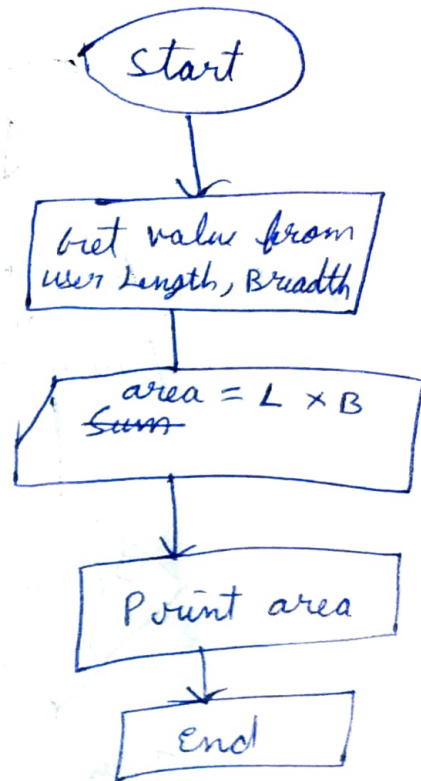 Start
Get value from
user Length, Breadth
area = L × B
Sum
Print area
End